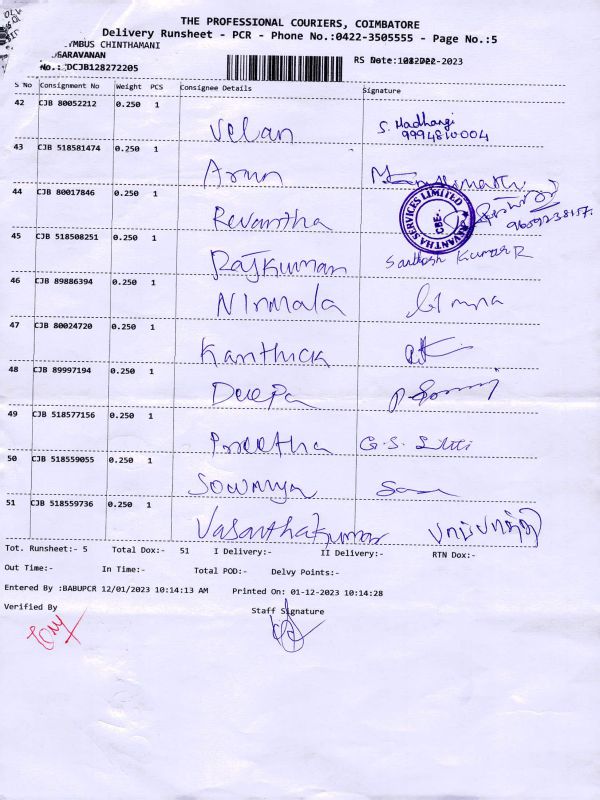 THE PROFESSIONAL COURIERS, COIMBATORE
Delivery Runsheet - PCR - Phone No.:0422-3505555 - Page No.:5
YMBUS CHINTHAMANI
SARAVANAN
No.:DCJB128272205
S No Consignment No Weight PCS Consignee Details Signature
42 CJB 80052212 0.250 1 Velan S. Madhangi
9994810004
43 CJB 518581474 0.250 1 Arun
44 CJB 80017846 0.250 1 Revantha
REVANTHA SERVICES LIMITED
CBE-
9659238157.
45 CJB 518508251 0.250 1 Rajkumar Santhosh Kumar R
46 CJB 89886394 0.250 1 Nirmala
47 CJB 80024720 0.250 1 Karthick
48 CJB 89997194 0.250 1 Deepa
49 CJB 518577156 0.250 1 Preetha G.S.
50 CJB 518559055 0.250 1 Sowmya
51 CJB 518559736 0.250 1 Vasanthakumar
Tot. Runsheet:- 5 Total Dox:- 51 I Delivery:- II Delivery:- RTN Dox:-
Out Time:- In Time:- Total POD:- Delvy Points:-
Entered By :BABUPCR 12/01/2023 10:14:13 AM Printed On: 01-12-2023 10:14:28
Verified By Staff Signature